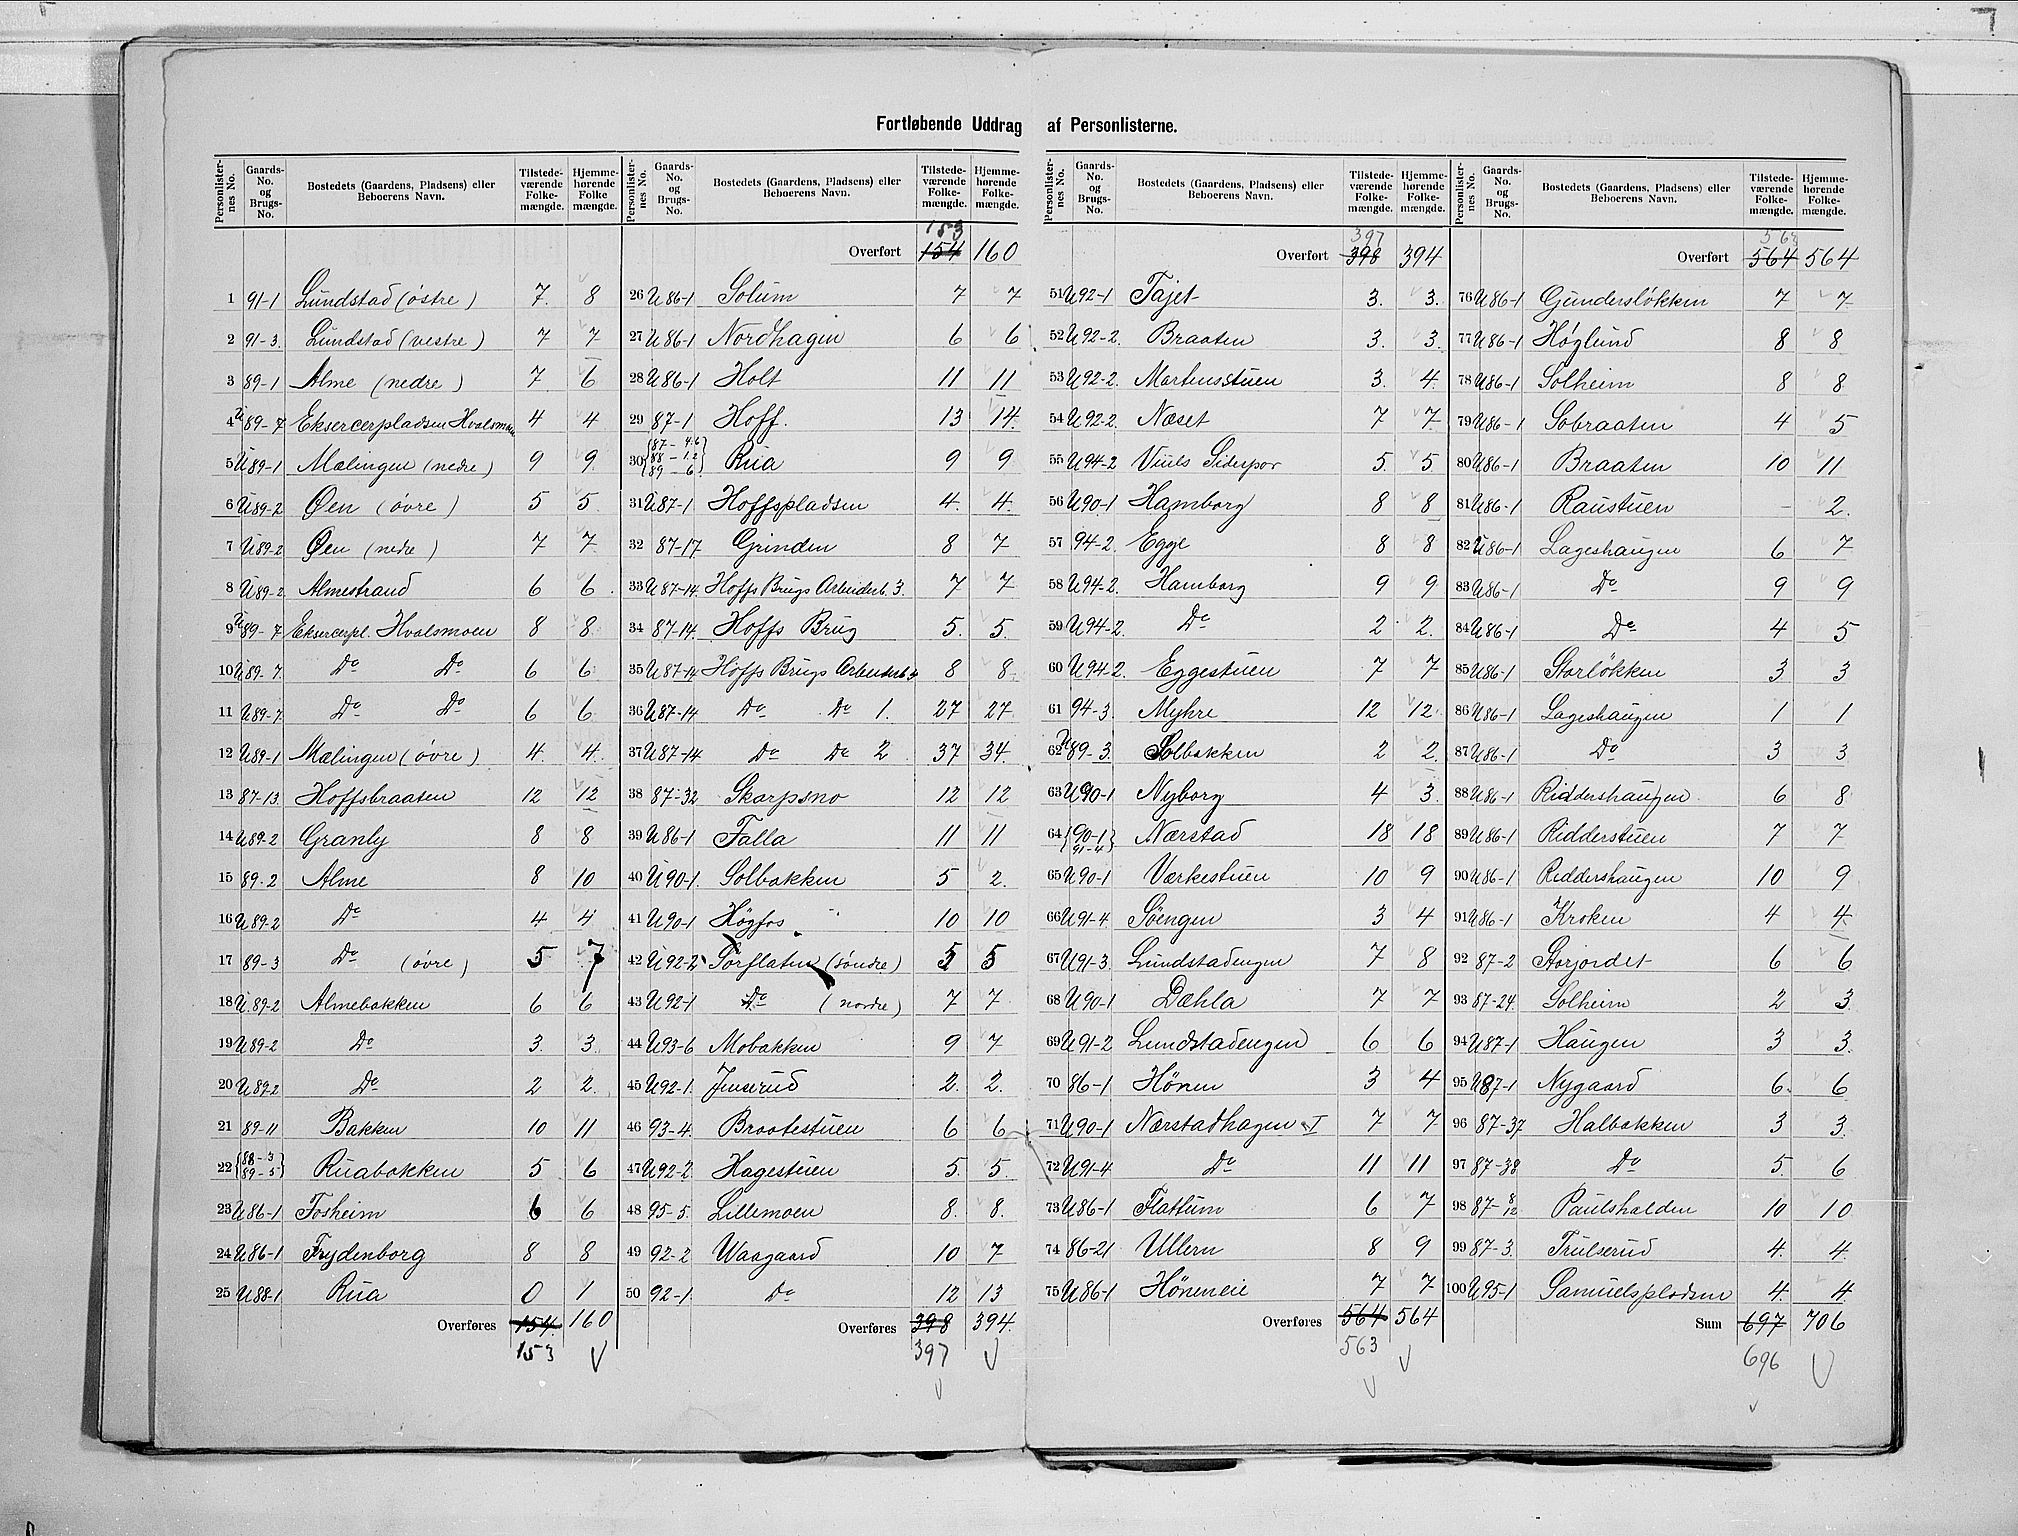 Fortløbende Uddrag af Personlisterne.
Personlisternes No. Gaards-No. og Brugs-No. Bostedets (Gaardens, Pladsens) eller Beboerens Navn. Tilstedeværende Folkemængde. Hjemmehørende Folkemængde.
1 91-1 Lundstad (östre) 7. 8
2 91-3. Lundstad (vestre) 7 7
3 89-1 Alme (nedre) 7 6
4 U 89-7 Eksercerpladsen Hvalsmoen 4 4
5 U 89-1 Mælingen (nedre) 9 9.
6 U 89-2 Øen (övre) 5 5.
7 U 89-2 Øen (nedre) 7 7.
8 U 89-2 Almestrand 6 6.
9 U 89-7 Eksercerpl. Hvalsmoen 8 8.
10 U 89-7. Do Do 6 6.
11 U 89-7 Do Do 6 6
12 U 89-1 Mælingen (övre) 4. 4.
13 87-13. Hoffsbraaten 12 12
14 U 89-2 Granly 8 8
15 89-2 Alme 8 10
16 U 89-2 Do 4 4
17 89-3 Do (övre) 5 7
18 U. 89-2 Almebakken 6 6
19 U 89-2 Do 3. 3.
20 U 89-2 Do 2 2.
21 89-11 Bakken 10 11
22 {88-3 89-5} Ruabakken 5 6
23 U 86-1 Fosheim 6 6
24 U 86-1 Frydenborg 8 8
25 U 88-1 Rua 0 1
Overføres 154. 160
153
Personlisternes No. Gaards-No. og Brugs-No. Bostedets (Gaardens, Pladsens) eller Beboerens Navn. Tilstedeværende Folkemængde. Hjemmehørende Folkemængde.
153
Overført 154 160
26 U 86-1 Solum 7 7
27 U 86-1 Nordhagen 6 6
28 U 86-1 Holt 11 11
29 87-1 Hoff. 13 14.
30 {87-4.6 88-1.2 89-6.} Rua 9 9
31 U 87-1 Hoffspladsen 4. 4.
32 87-17 Grinden 8 7
33 U 87-14. Hoffs Brugs Arbeiderb. 3. 7 7
34 87-14. Hoffs Brug 5. 5.
35 U 87-14 Hoffs Brugs Arbeiderb. 8 8.
36 U 87-14 Do Do 1. 27 27.
37 U 87-14 Do Do 2 37 34.
38 87-32 Skarpsno 12 12
39 U 86-1 Falla 11 11
40 U 90-1. Solbakken 5 2.
41 U 90-1 Högfos 10 10
42 U 92-2 Sörflaten (söndre) 5
43 U 92-1 Do (nordre) 7 7
44 U 93-6 Mobakken 9 7
45 U 92-1. Jenserud 2. 2.
46 93-4. Braatestuen 6 6
47 U 92-2. Hagestuen 5. 5.
48 95-5. Lillemoen 8. 8.
49 92-2 Waagaard 10 7
50 92-1. Do 12 13
Overføres 398 394.
397
Personlisternes No. Gaards-No. og Brugs-No. Bostedets (Gaardens, Pladsens) eller Beboerens Navn. Tilstedeværende Folkemængde. Hjemmehørende Folkemængde.
397
Overført 398 394
51 U 92-1 Tajet 3. 3.
52 U 92-2. Braaten 3. 3.
53 U 92-2. Martensstuen 3. 4.
54 U 92-2. Næset 7 7.
55 U 94-2 5. 5.
56 U 90-1 Hamborg 8 8
57 94-2. Egge 8 8
58 U 94-2. Hamborg 9 9.
59 U 94-2. Do 2 2.
60 U 94-2. Eggestuen 7 7
61 94-3. Myhre 12 12.
62 U 89-3. Solbakken 2 2.
63 U 90-1 Nyborg 4 3.
64 {90-1 91-4} Nærstad 18 18
65 U 90-1 Værkestuen 10 9
66 U 91-4. Söengen 3 4
67 U 91-3. Lundstadengen 7 8
68 U 90-1 Dæhla 7 7
69 U 91-2 Lundstadengen 6 6
70 86-1 Hönen 3 4
71 U 90-1 Nærstadhagen I 7 7
72 U 91-4 Do 11 11
73 U 86-1 Flattum 6 7
74 86-21 Ullern 8 9
75 U 86-1 Höneneie 7 7
Overføres 564 564
563
Personlisternes No. Gaards-No. og Brugs-No. Bostedets (Gaardens, Pladsens) eller Beboerens Navn. Tilstedeværende Folkemængde. Hjemmehørende Folkemængde.
Overført 564 564
76 U 86-1 Gunderslökken 7 7.
77 U 86-1 Höglund 8 8
78 U 86-1 Solheim 8 8
79 U 86-1 Sobraaten 4 5
80 U 86-1 Braaten 10 11
81 U 86-1 Raustuen - 2.
82 U 86-1 Lageshaugen 6 7
83 U 86-1 Do 9 9
84 U 86-1 Do 4 5
85 U 86-1 Storlökken 3 3
86 U 86-1 Lageshaugen 1 1
87 U 86-1 Do 3 3
88 U 86-1 Riddershaugen. 6 8
89 U 86-1 Ridderstuen 7 7
90 U 86-1 Riddershaugen 10 9
91 U 86-1 Kroken 4 4
92 87-2 Storjordet 6 6
93 87-24. Solheim 2 3.
94 U 87-1 Haugen 3 3.
95 U 87-1 Nygaard 6. 6
96 87-37 Halbakken 3 3.
97 87-38 Do 5 6
98 87-8/12 Paulshalden 10 10
99 87-3. Trulserud 4. 4.
100 U 95-1 Samuelspladsen 4. 4.
Sum 697 706
696